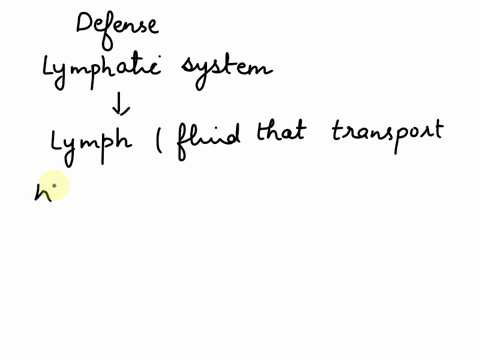 Defense
Lymphatic system
↓
Lymph ( fluid that transport